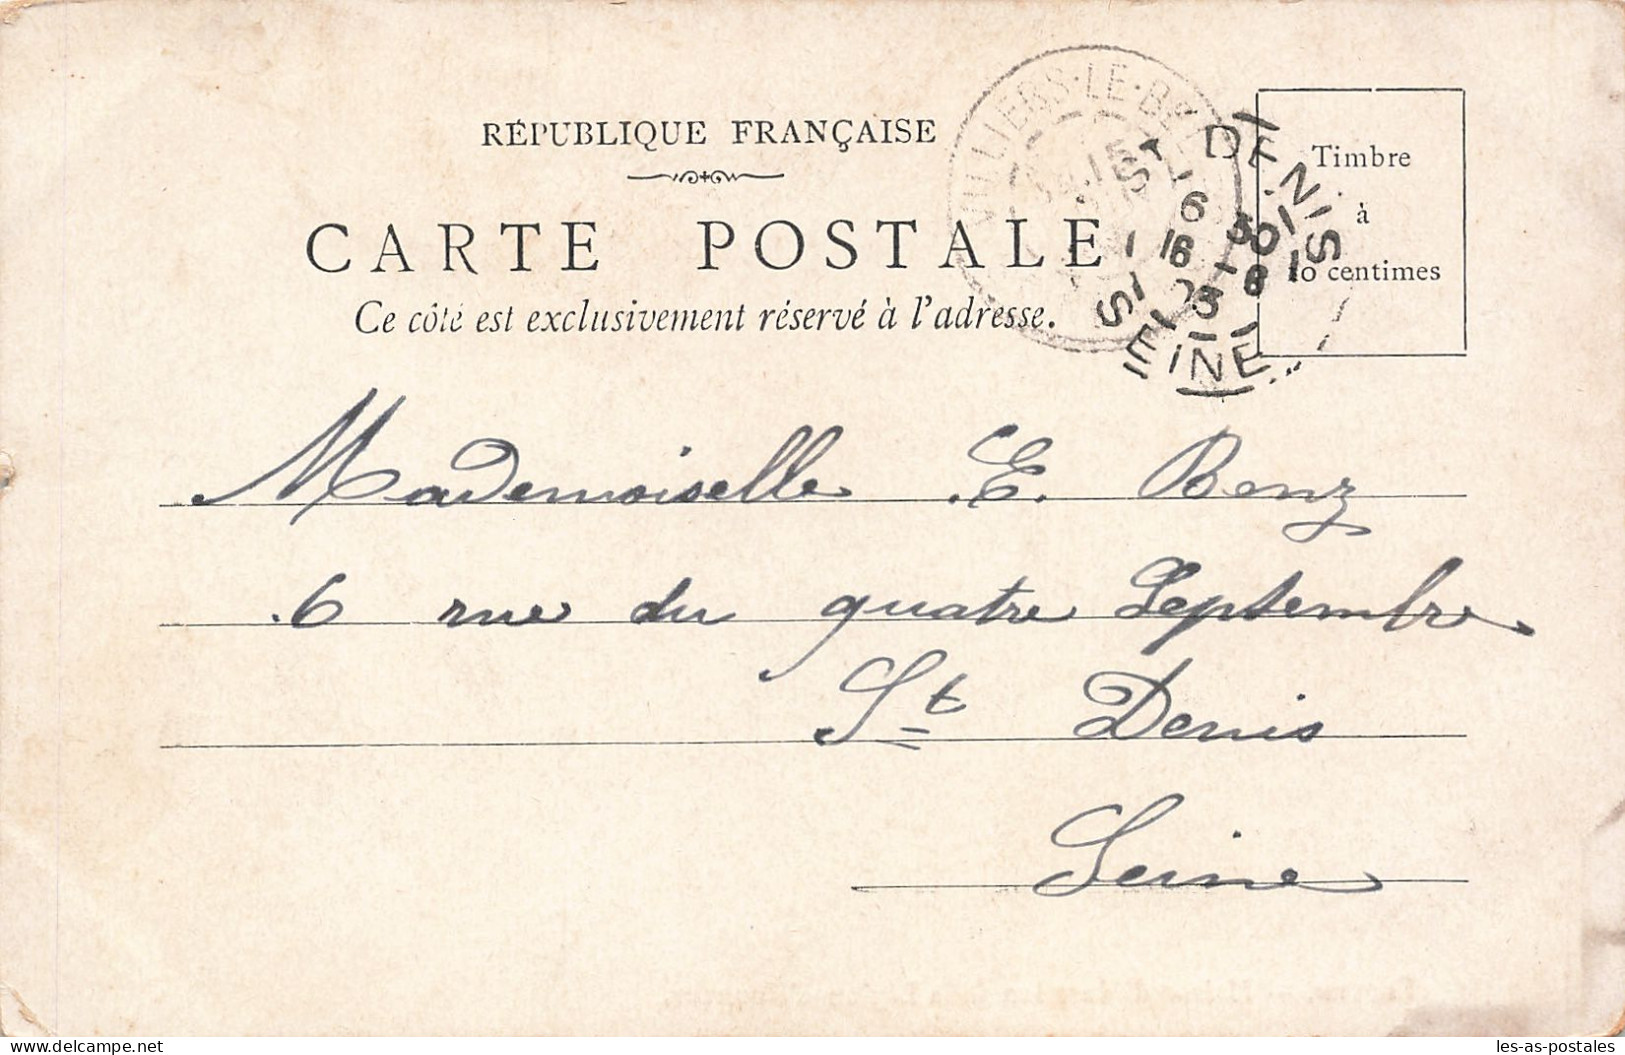 RÉPUBLIQUE FRANÇAISE
CARTE POSTALE
Ce côté est exclusivement réservé à l'adresse.
Timbre
à
10 centimes
VILLIERS-LE-BEL
ST DENIS
6 30
16 - 8
03
SEINE
Mademoiselle E. Benz
6 rue du quatre Septembre
St Denis
Seine
delcampe.net
les-as-postales